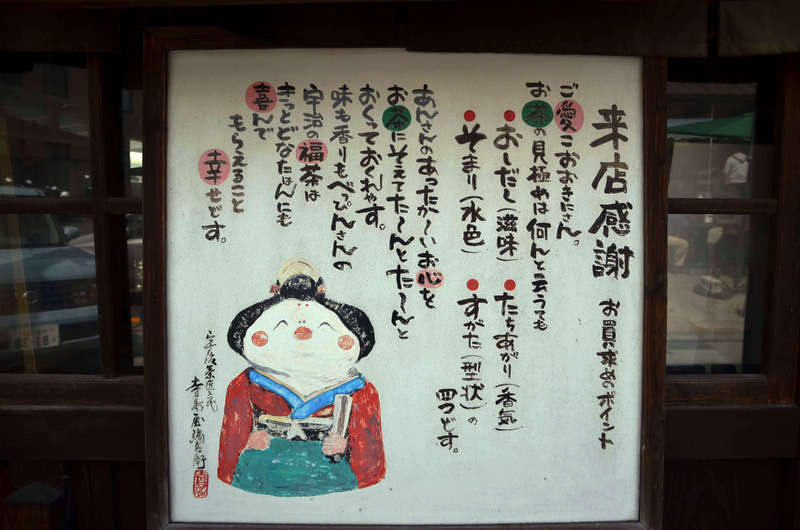 来店感謝 お買求めのポイント
ご愛こおおきにさん。
お茶の見極めは何んと云うても
●おしだし(滋味) ●たちあがり(香気)
●そまり(水色) ●すがた(型状)の
四つどす。
あんさんのあったか〜いお心を
お茶にそえてた〜んとた〜んと
おくっておくれやす。
味も香りもべっぴんさんの
宇治の福茶は
きっとどなたはんにも
喜んで
もらえること
幸せどす。